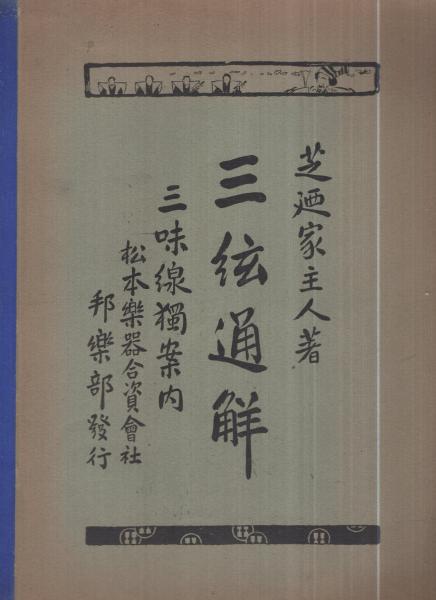 芝廼家主人著
三絃通解
三味線獨案内
松本樂器合資會社
邦樂部發行